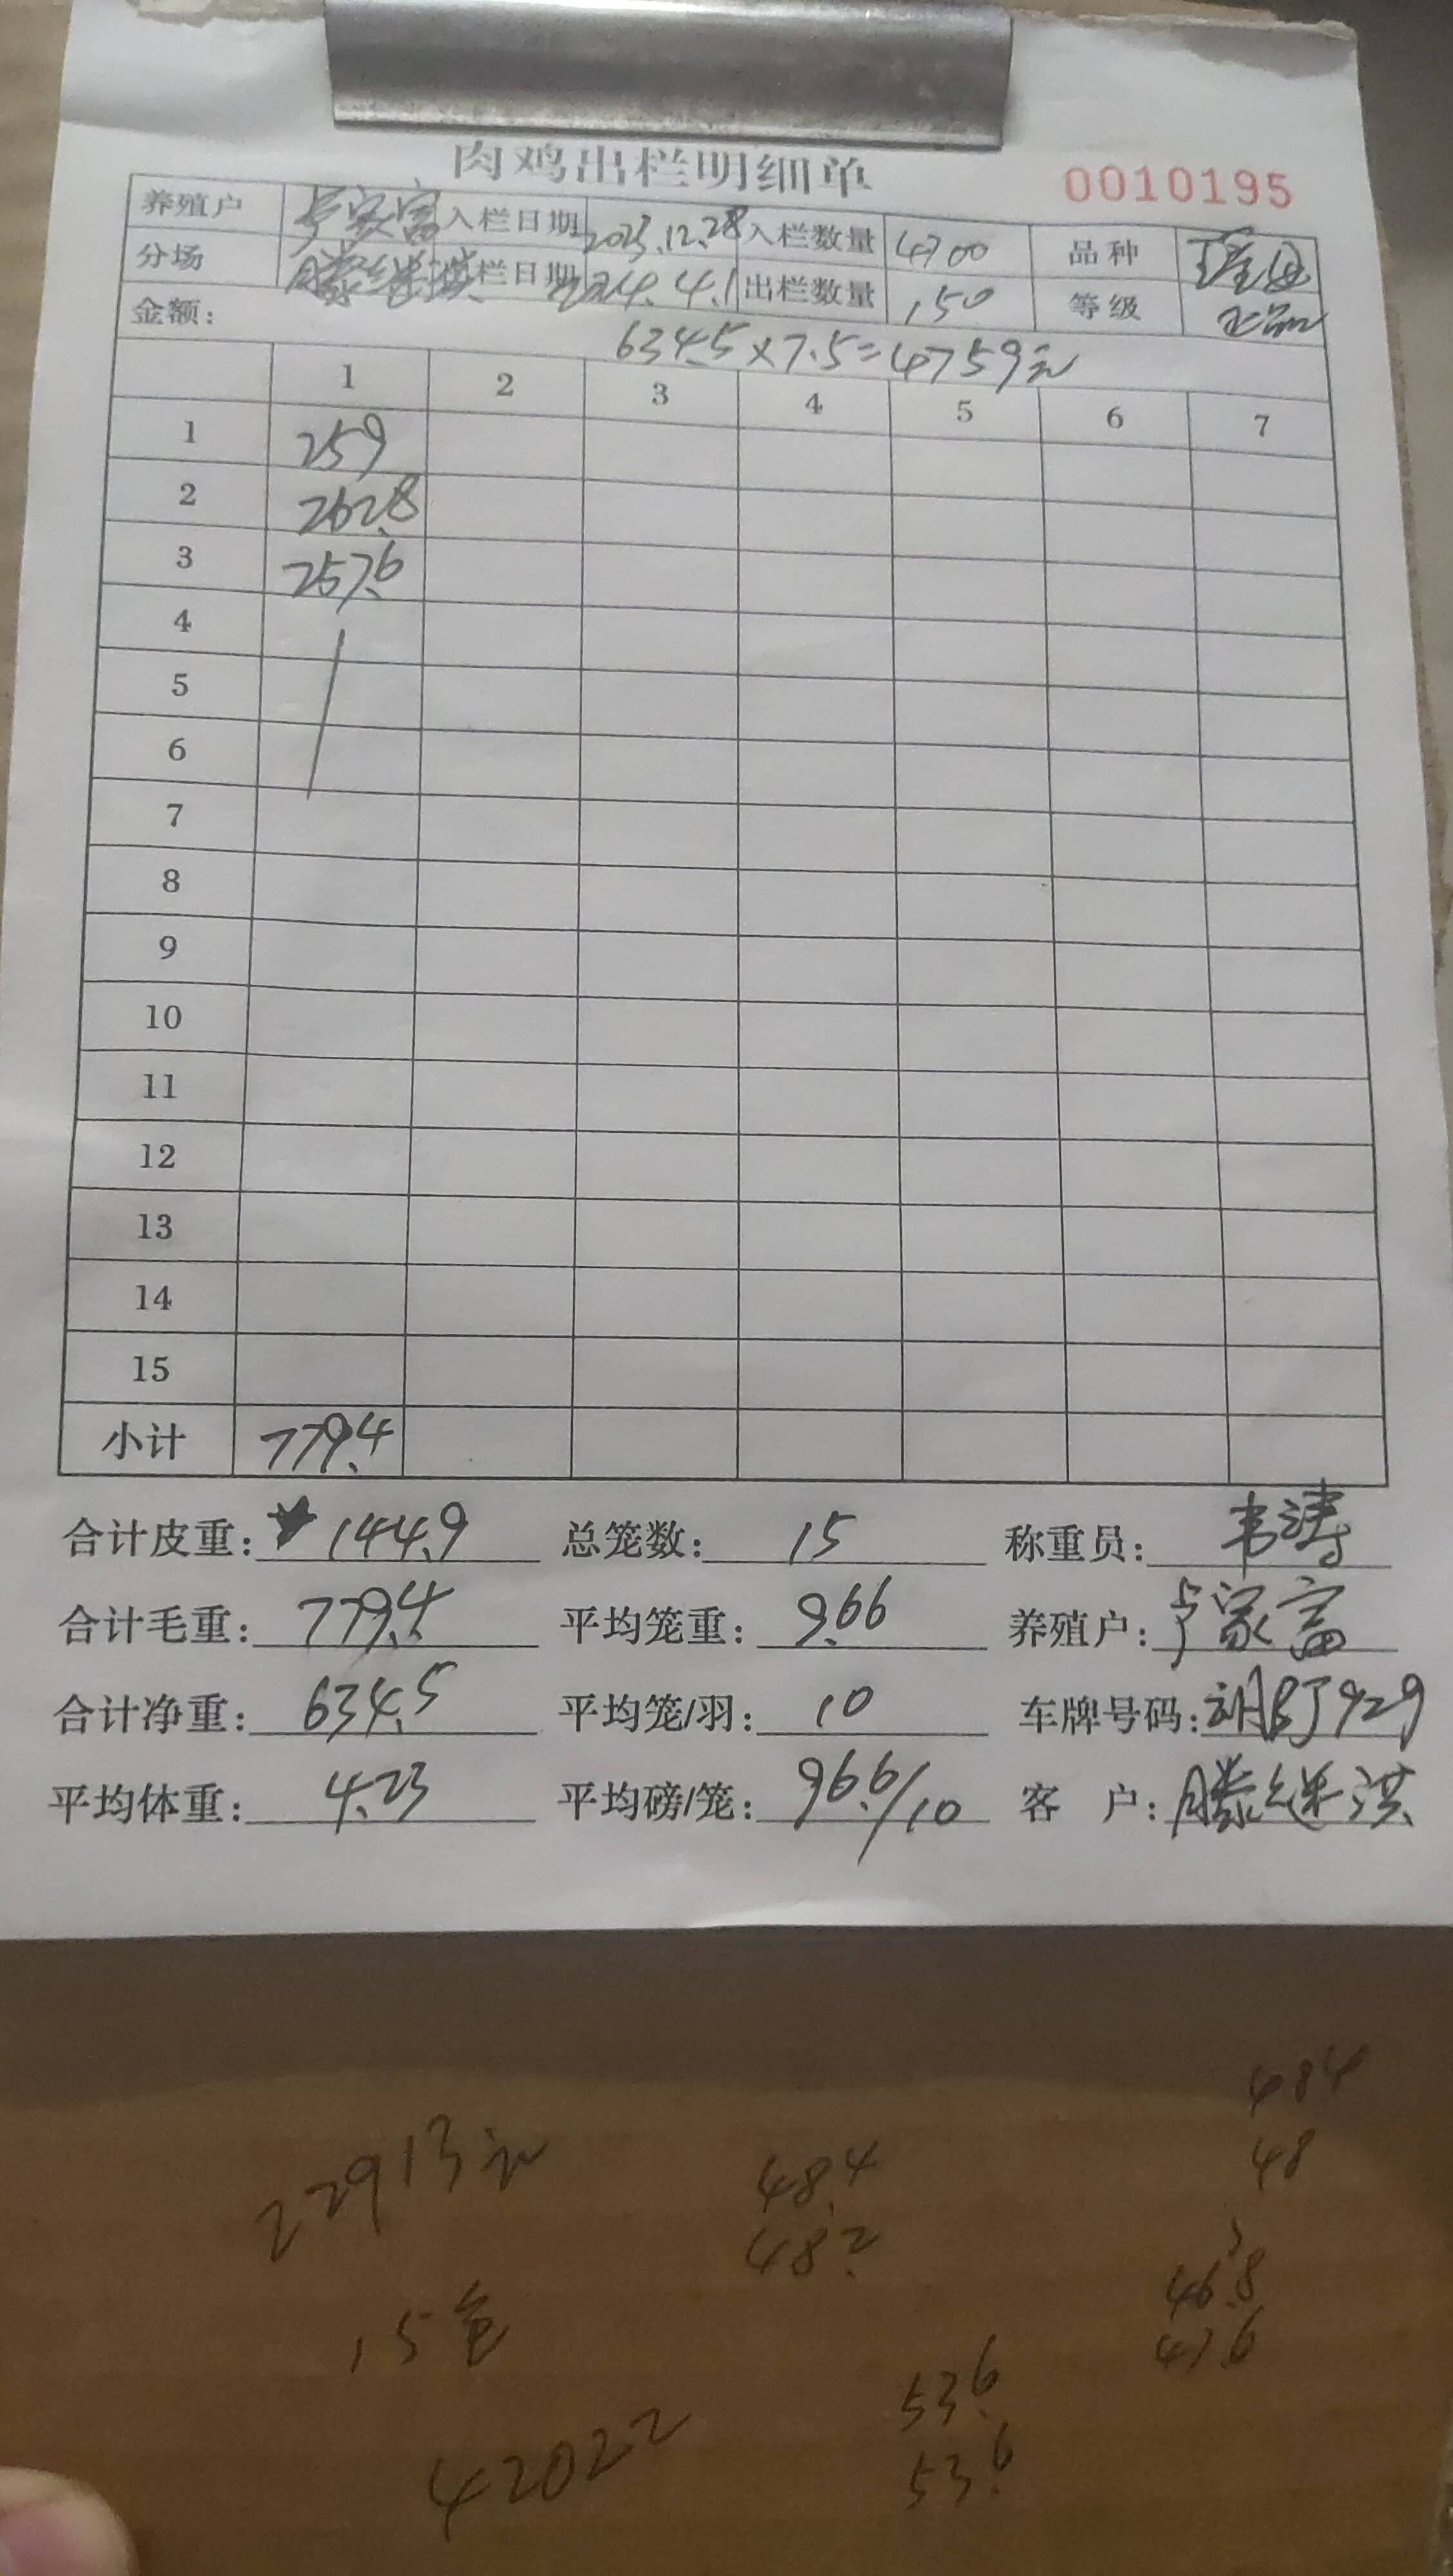 肉鸡出栏明细单
0010195
养殖户 卢家富 入栏日期 2023.12.28 入栏数量 4700 品种
分场 滕继洪 栏日期 2024.4.1 出栏数量 150 等级
金额: 634.5×7.5=4759元
1 2 3 4 5 6 7
1 259
2 262.8
3 257.6
4
5
6
7
8
9
10
11
12
13
14
15
小计 779.4
合计皮重: 144.9 总笼数: 15 称重员: 韦涛
合计毛重: 779.4 平均笼重: 9.66 养殖户: 卢家富
合计净重: 634.5 平均笼/羽: 10 车牌号码:
平均体重: 4.23 平均磅/笼: 96.6/10 客 户: 滕继洪
484
22913元 48.4 48
48.2
46.8
15仓 47.6
53.6
42022 53.6